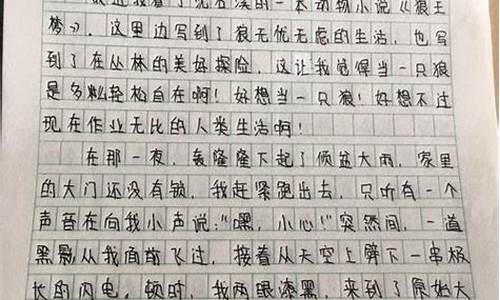 我看了沈石溪的一本动物小说《狼王
梦》，这里边写到了狼无忧无虑的生活，也写
到了在丛林的美好探险，这让我觉得当一只狼
是多么轻松自在啊！好想当一只狼！好想不过
现在作业无比的人类生活啊！
在那一夜，轰隆隆下起了倾盆大雨，家里
的大门还没有锁，我赶紧跑出去，只听有一个
声音在向我小声说：“嘿，小心！”突然间，一道
黑影从我面前飞过，接着从天空上劈下一串极
长的闪电，顿时，我两眼漆黑，来到了原始大